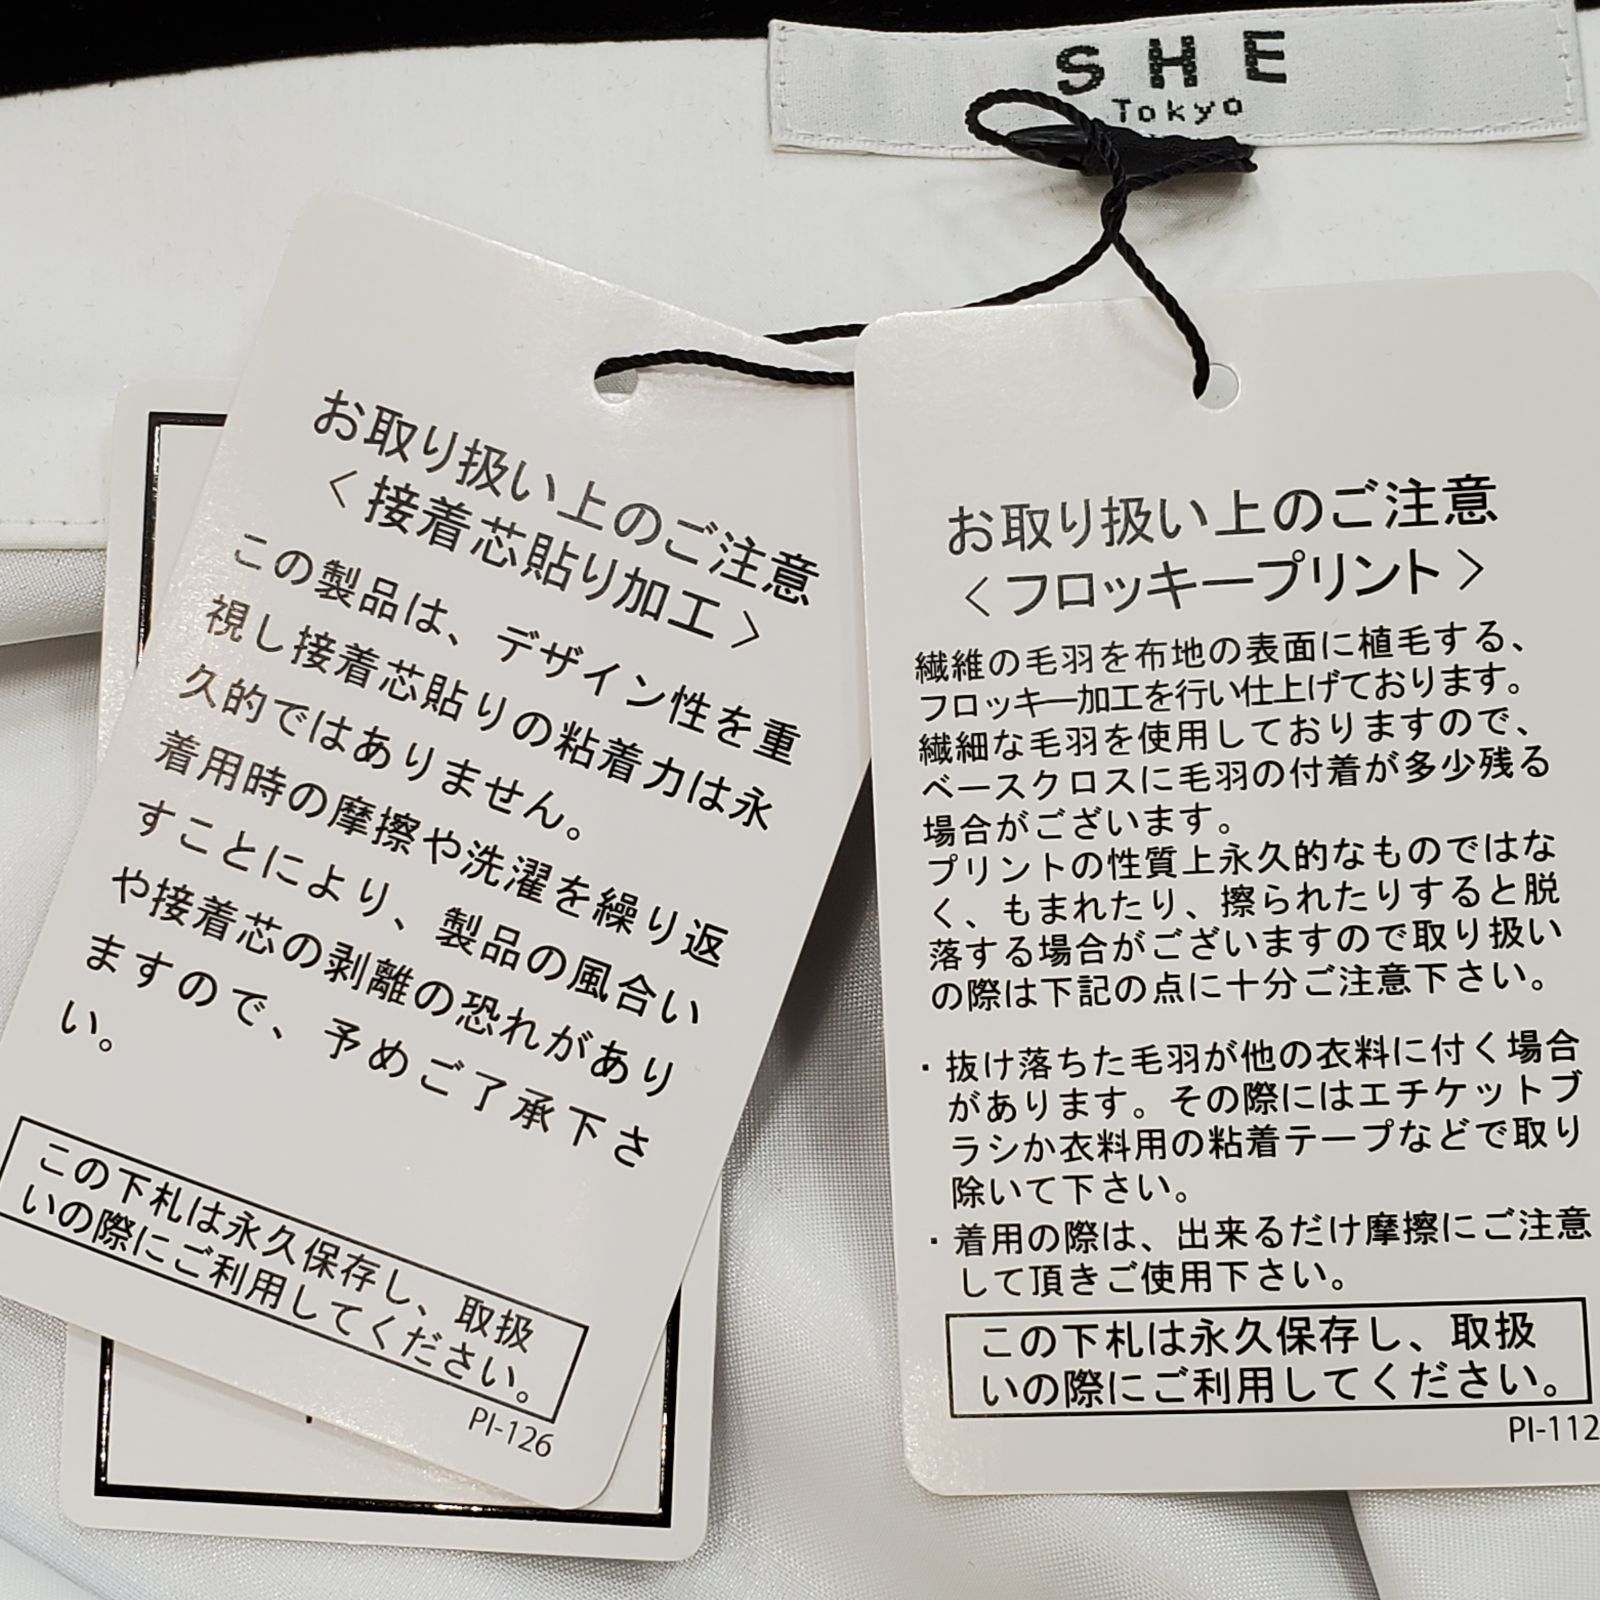 SHE
Tokyo
お取り扱い上のご注意
＜接着芯貼り加工＞
この製品は、デザイン性を重
視し接着芯貼りの粘着力は永
久的ではありません。
着用時の摩擦や洗濯を繰り返
すことにより、製品の風合い
や接着芯の剥離の恐れがあり
ますので、予めご了承下さ
い。
この下札は永久保存し、取扱
いの際にご利用してください。
PI-126
お取り扱い上のご注意
＜フロッキープリント＞
繊維の毛羽を布地の表面に植毛する、
フロッキー加工を行い仕上げております。
繊細な毛羽を使用しておりますので、
ベースクロスに毛羽の付着が多少残る
場合がございます。
プリントの性質上永久的なものではな
く、もまれたり、擦られたりすると脱
落する場合がございますので取り扱い
の際は下記の点に十分ご注意下さい。
・抜け落ちた毛羽が他の衣料に付く場合
があります。その際にはエチケットブ
ラシか衣料用の粘着テープなどで取り
除いて下さい。
・着用の際は、出来るだけ摩擦にご注意
して頂きご使用下さい。
この下札は永久保存し、取扱
いの際にご利用してください。
PI-112